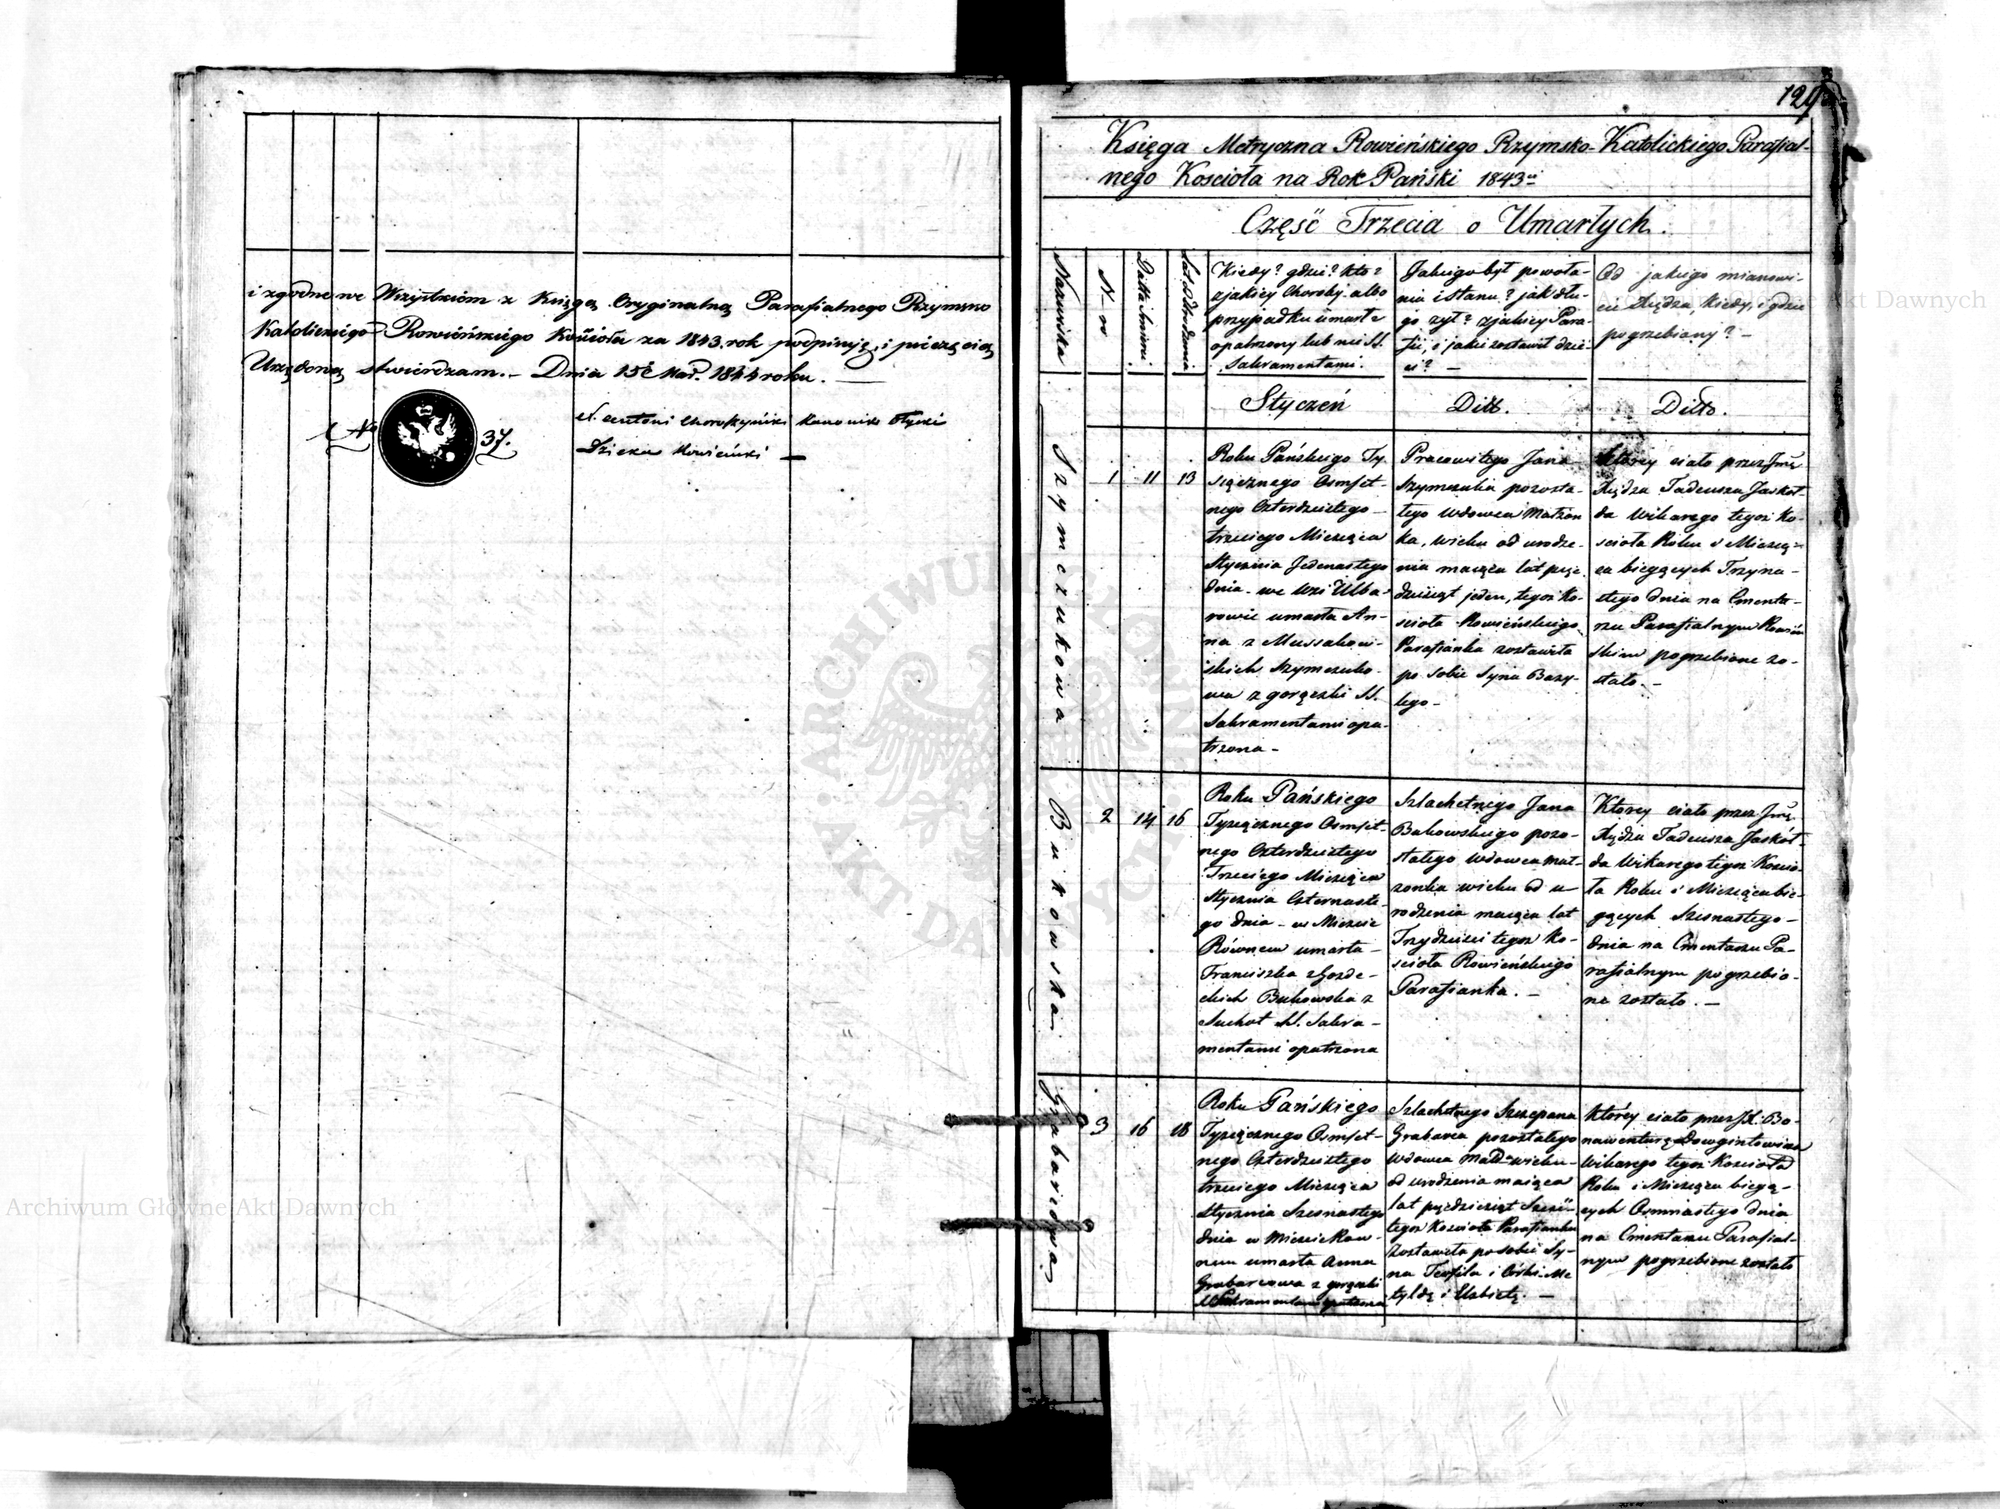 i zgodne we Wszystkiem z Księgą Oryginalną Parafialnego Rzymsko
Katolickiego Rowieńskiego Kościoła za 1843. rok podpisuję, i pieczęcią
Urzędową stwierdzam. — Dnia 15 Mar. 1844 roku. —
No 37.
X. Antoni Kanonik Ołycki
Dziekan Rowieński —
129
Księga Metryczna Rowieńskiego Rzymsko-Katolickiego Parafial-
nego Kościoła na Rok Pański 1843
Część Trzecia o Umarłych.
Nazwiska
N-r
Datta śmierci
Kiedy? gdzie? kto?
z jakiey choroby albo
przypadku umarł?
opatrzony lub nie SS.
Sakramentami.
Jakiego był powoła-
nia i stanu? jak dłu-
go żył? z jakiey Para-
fii, i jakie zostawił dzie-
ci? —
Od jakiego mianowi-
cie Xiędza, kiedy, i gdzie
pogrzebiony? —
Styczeń
Ditto.
Ditto.
Szymczukowa
1
11
13
Roku Pańskiego Ty-
siącznego Osmset-
nego Czterdziestego
trzeciego Miesiąca
Stycznia Jedenastego
dnia we Wsi
umarła An-
na z
skich Szymczuko-
wa z gorączki SS.
Sakramentami opa-
trzona —
Pracowitego Jana
Szymczuka pozosta-
łego wdowca Małżon
ka, wieku od urodze-
nia maiąca lat pięć-
dziesiąt jeden, tegoż Ko-
ścioła Rowieńskiego
Parafianka zostawiła
po sobie Syna Bazy-
lego —
Którey ciało przez Jmę
Xiędza Tadeusza Jaskół-
da Wikarego tegoż Ko-
ścioła Roku i Miesią-
ca bieżących Trzyna-
stego dnia na Cmenta-
rzu Parafialnym Rowień
skim pogrzebione zo-
stało. —
Bukowska
2
14
16
Roku Pańskiego
Tysiącznego Osmset-
nego Czterdziestego
Trzeciego Miesiąca
Stycznia Czternaste-
go dnia w Mieście
Równem umarła
Franciszka z Gozde-
ckich Bukowska z
Suchot SS. Sakra-
mentami opatrzona
Szlachetnego Jana
Bukowskiego pozo-
stałego wdowca mał-
żonka wieku od u-
rodzenia maiąca lat
Trzydzieści tegoż Ko-
ścioła Rowieńskiego
Parafianka. —
Którey ciało przez Jmę
Xiędza Tadeusza Jaskół-
da Wikarego tegoż Kościo-
ła Roku i Miesiąca bie-
żących Szesnastego
dnia na Cmentarzu Pa-
rafialnym pogrzebio-
ne zostało. —
Grabarzowa
3
16
18
Roku Pańskiego
Tysiącznego Osmset-
nego Czterdziestego
trzeciego Miesiąca
Stycznia Szesnastego
dnia w Mieście Row-
nem umarła Anna
Grabarzowa z gorączki
SS Sakramentami opatrzona
Szlachetnego Szczepana
Grabarza pozostałego
wdowca wieku
od urodzenia maiąca
lat pięćdziesiąt Sześć
tegoż Kościoła Parafianka
Zostawiła po sobie Sy-
na Teofila i Córki Ma-
tyldę i Elżbietę. —
Którey ciało przez JX. Bo-
nawenturę Dowgintowicza
Wikarego tegoż Kościoła
Roku i Miesiąca bieżą-
cych Osmnastego dnia
na Cmentarzu Parafial-
nym pogrzebione zostało
Archiwum Główne Akt Dawnych
Archiwum Główne Akt Dawnych
ARCHIWUM GŁÓWNE AKT DAWNYCH